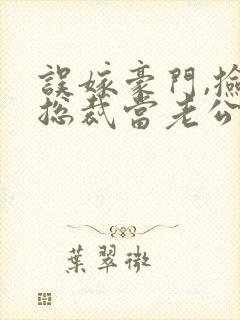 誤嫁豪門,撿
總裁當老公
葉翠微